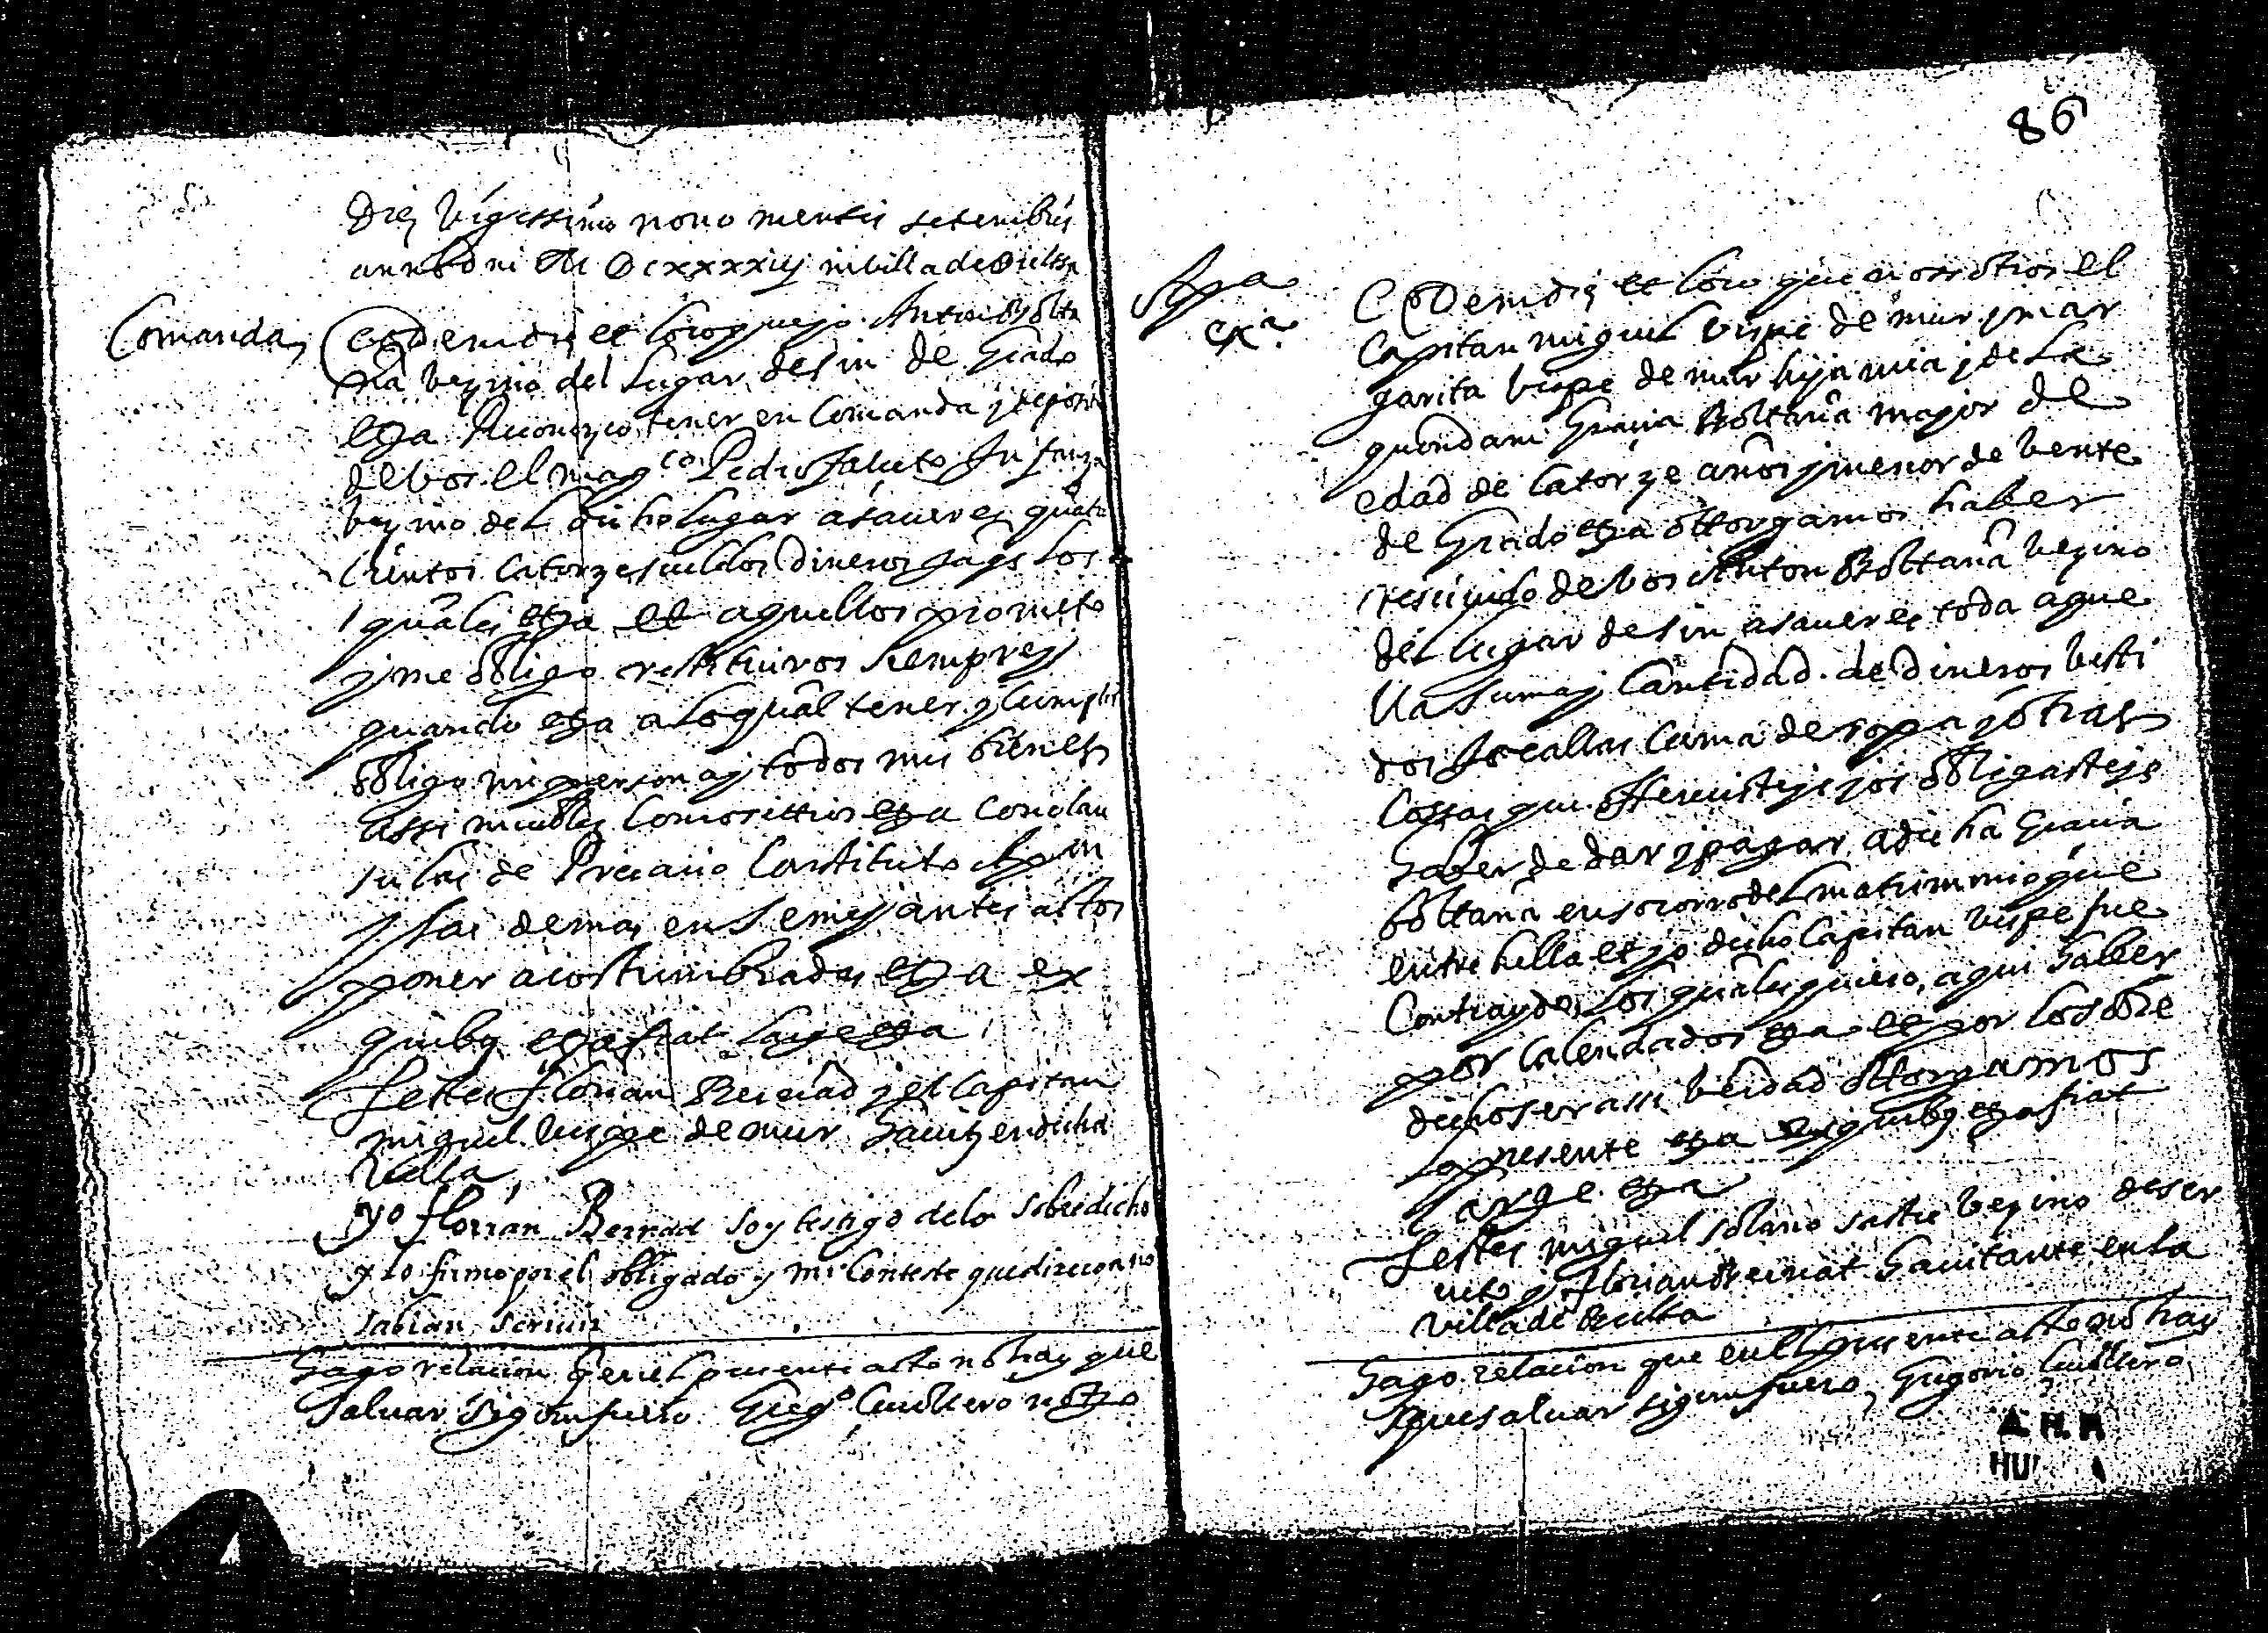 Die Vigessimo nono mensis setembris
anno Dni M DCxxxxiij in villa de Bielssa
Comanda
Eodem die et loco que yo Anton Bolta
ña vezino del lugar de sin de Grado
etza Reconozco tener en Comanda y deposito
de vos el magco Pedro falceto Infanzon
vezino del dicho lugar a sauer es quatro
cientos Catorze sueldos Dineros Jaqs los
quales etza et aquellos prometo
y me obligo restituiros siempre y
quando etza a lo qual tener y Cumplir
obligo mi persona y todos mis bienes
assi muebles Como sittios etza Con clau
sulas de Precario Constituto Apon
y las demas en Semejantes actos
poner acostumbradas etza ex
quibus etza fiat large etza
Testes florian Bernad y el Capitan
miguel vispe de mur havits en dicha
Villa
yo florian Bernad soy testigo delo sobredicho
y lo firmo por el obligado y mi Conteste que dixeron no
sabian scriuir
Hago relacion q en el presente acto no hay que
saluar sigun fuero Grego Guillero notro
86
Apa
cxa
Eodem die et loco que nosotros el
Capitan miguel vispe de mur y mar
garita vispe de mur hija mia y de la
quondam Gracia Boltaña mayor de
edad de Catorze años y menor de vente
de Grado etza ottorgamos haber
resciuido de vos Anton Boltaña vezino
del lugar de sin a sauer es toda aque
lla suma y Cantidad de dineros vesti
dos Jocallas Cama de ropa y otras
Cossas que offrecisteys y os obligasteys
haber de dar y pagar a dicha Gracia
boltaña en socorro del matrimonio que
entre hella et yo dicho Capitan vispe fue
Contraydo los quales quiero aqui haber
por Calendados etza et por lo sobre
dicho ser assi verdad ottorgamos
la presente etza ex quibus etza fiat
large etza
Testes miguel solano sastre vezino de ser
ueto y florian Bernat hauitante en la
villa de Bielsa
Hago relacion que en el presente acto no hay
que saluar sigun fuero Gregorio Guillero
A.H.P.
HU